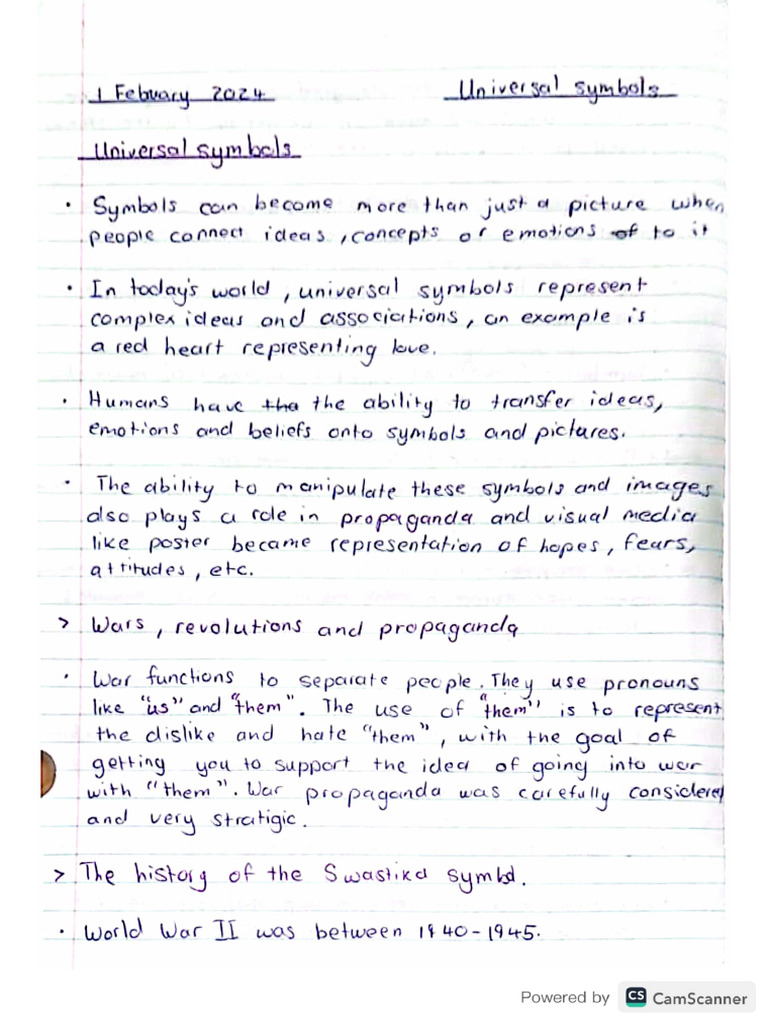 1 Febuary 2024 Universal symbols
Universal symbols
• Symbols can become more than just a picture when
people connect ideas, concepts or emotions of to it
• In today's world, universal symbols represent
complex ideas and associations, an example is
a red heart representing love.
• Humans have tha the ability to transfer ideas,
emotions and beliefs onto symbols and pictures.
• The ability to manipulate these symbols and images
also plays a role in propaganda and visual media
like poster became representation of hopes, fears,
attitudes, etc.
> Wars, revolutions and propaganda
• War functions to separate people. They use pronouns
like "us" and "them". The use of "them" is to represent
the dislike and hate "them", with the goal of
getting you to support the idea of going into war
with "them". War propaganda was carefully considered
and very stratigic.
> The history of the Swastika symbol.
• World War II was between 1940-1945.
Powered by CS CamScanner